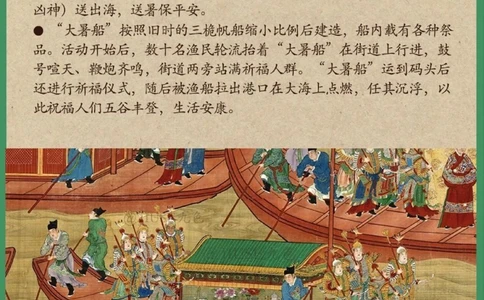 凶神）送出海，送暑保平安。
● “大暑船”按照旧时的三桅帆船缩小比例后建造，船内载有各种祭
品。活动开始后，数十名渔民轮流抬着“大暑船”在街道上行进，鼓
号喧天、鞭炮齐鸣，街道两旁站满祈福人群。“大暑船”运到码头后
还进行祈福仪式，随后被渔船拉出港口在大海上点燃，任其沉浮，以
此祝福人们五谷丰登，生活安康。